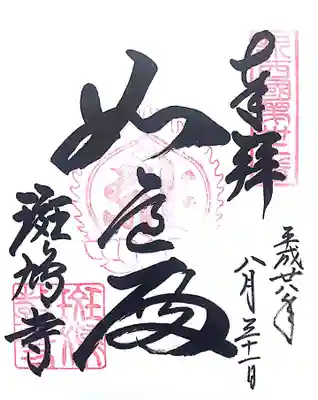 奉拝
平成廿八年
八月三十一日
如意殿
斑鳩寺